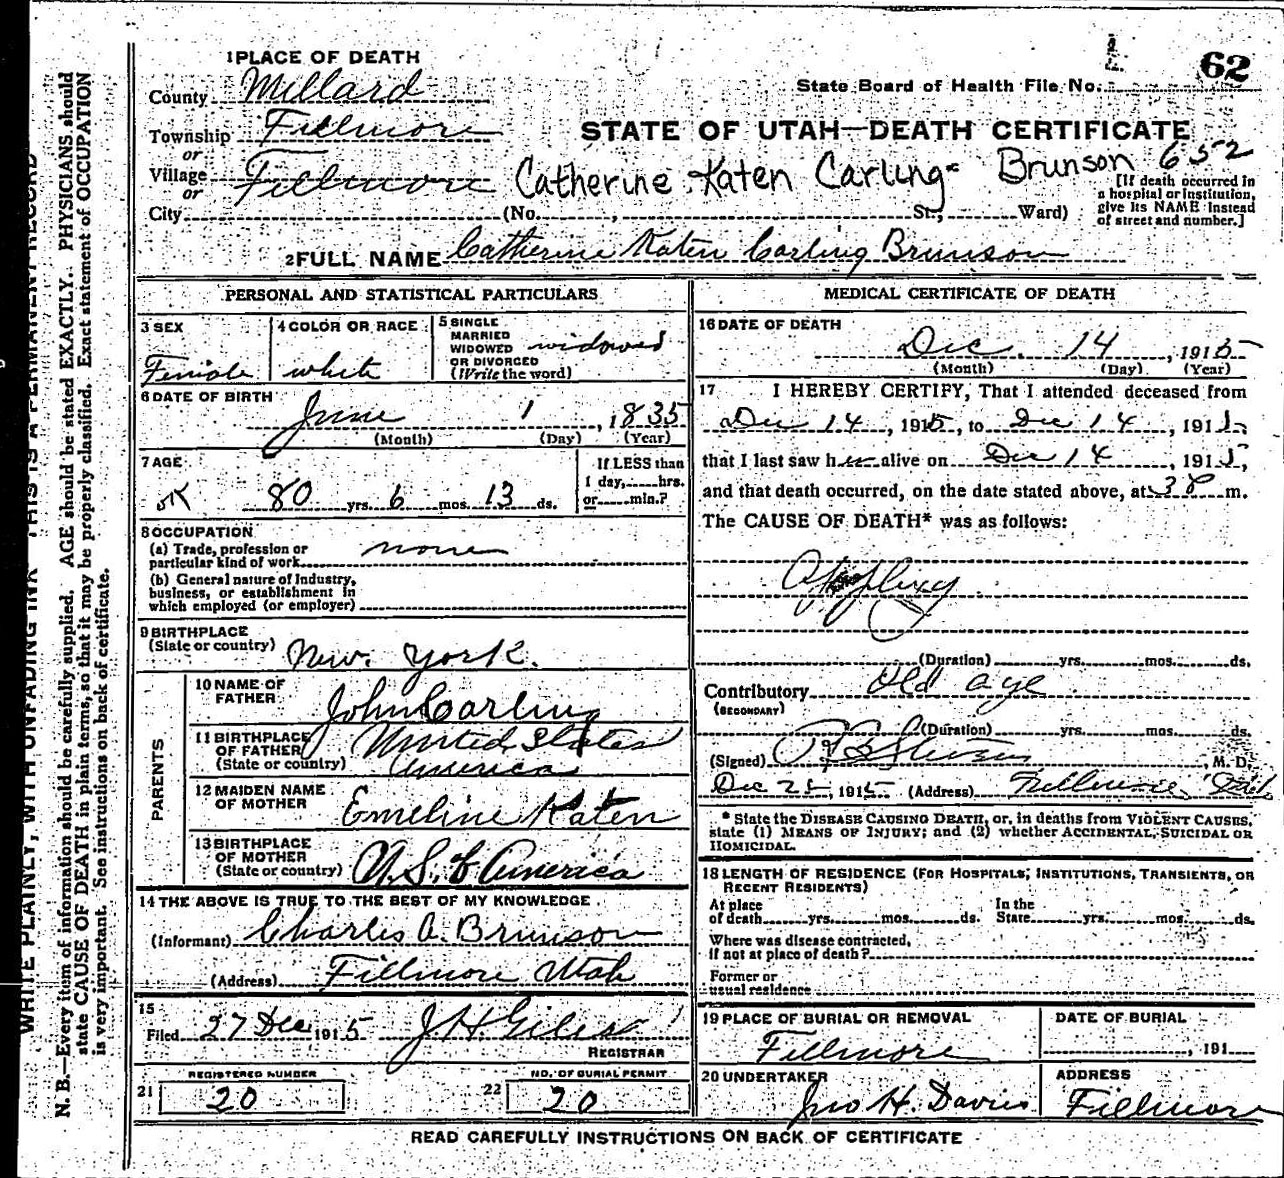 62
State Board of Health File No.
1 PLACE OF DEATH
County Millard
Township Fillmore
or
Village Fillmore
or
City (No. , St., Ward)
STATE OF UTAH—DEATH CERTIFICATE
Catherine Katen Carling- Brunson 652
[If death occurred in
a hospital or institution,
give its NAME instead
of street and number.]
2 FULL NAME Catherine Katen Carling Brunson
PERSONAL AND STATISTICAL PARTICULARS
3 SEX
Female
4 COLOR OR RACE
white
5 SINGLE
MARRIED
WIDOWED
OR DIVORCED
(Write the word)
widowed
6 DATE OF BIRTH
June 1, 1835
(Month) (Day) (Year)
7 AGE
80 yrs. 6 mos. 13 ds.
If LESS than
1 day, hrs.
or min.?
8 OCCUPATION
(a) Trade, profession or
particular kind of work none
(b) General nature of Industry,
business, or establishment in
which employed (or employer)
9 BIRTHPLACE
(State or country) New York.
PARENTS
10 NAME OF
FATHER John Carling
11 BIRTHPLACE
OF FATHER
(State or country) United States
America
12 MAIDEN NAME
OF MOTHER Emeline Katen
13 BIRTHPLACE
OF MOTHER
(State or country) U.S. of America
14 THE ABOVE IS TRUE TO THE BEST OF MY KNOWLEDGE.
(Informant) Charles A. Brunson
(Address) Fillmore Utah
15
Filed 27 Dec 1915 J H Giles
REGISTRAR
REGISTERED NUMBER
21 20
NO. OF BURIAL PERMIT
22 20
MEDICAL CERTIFICATE OF DEATH
16 DATE OF DEATH
Dec. 14, 1915
(Month) (Day) (Year)
17 I HEREBY CERTIFY, That I attended deceased from
Dec 14, 1915, to Dec 14, 1915,
that I last saw her alive on Dec 14, 1915,
and that death occurred, on the date stated above, at m.
The CAUSE OF DEATH* was as follows:
Apoplexy
(Duration) yrs. mos. ds.
Contributory Old age
(SECONDARY)
(Duration) yrs. mos. ds.
(Signed) , M. D.
Dec , 1915 (Address) Fillmore, Utah
* State the DISEASE CAUSING DEATH, or, in deaths from VIOLENT CAUSES,
state (1) MEANS OF INJURY; and (2) whether ACCIDENTAL, SUICIDAL OR
HOMICIDAL.
18 LENGTH OF RESIDENCE (FOR HOSPITALS, INSTITUTIONS, TRANSIENTS, OR
RECENT RESIDENTS)
At place In the
of death yrs. mos. ds. State yrs. mos. ds.
Where was disease contracted,
if not at place of death?
Former or
usual residence
19 PLACE OF BURIAL OR REMOVAL
Fillmore
DATE OF BURIAL
, 191
20 UNDERTAKER
Jno H. Davies
ADDRESS
Fillmore
READ CAREFULLY INSTRUCTIONS ON BACK OF CERTIFICATE
WRITE PLAINLY, WITH UNFADING INK—THIS IS A PERMANENT RECORD
N. B.—Every item of information should be carefully supplied. AGE should be stated EXACTLY. PHYSICIANS should
state CAUSE OF DEATH in plain terms, so that it may be properly classified. Exact statement of OCCUPATION
is very important. See instructions on back of certificate.